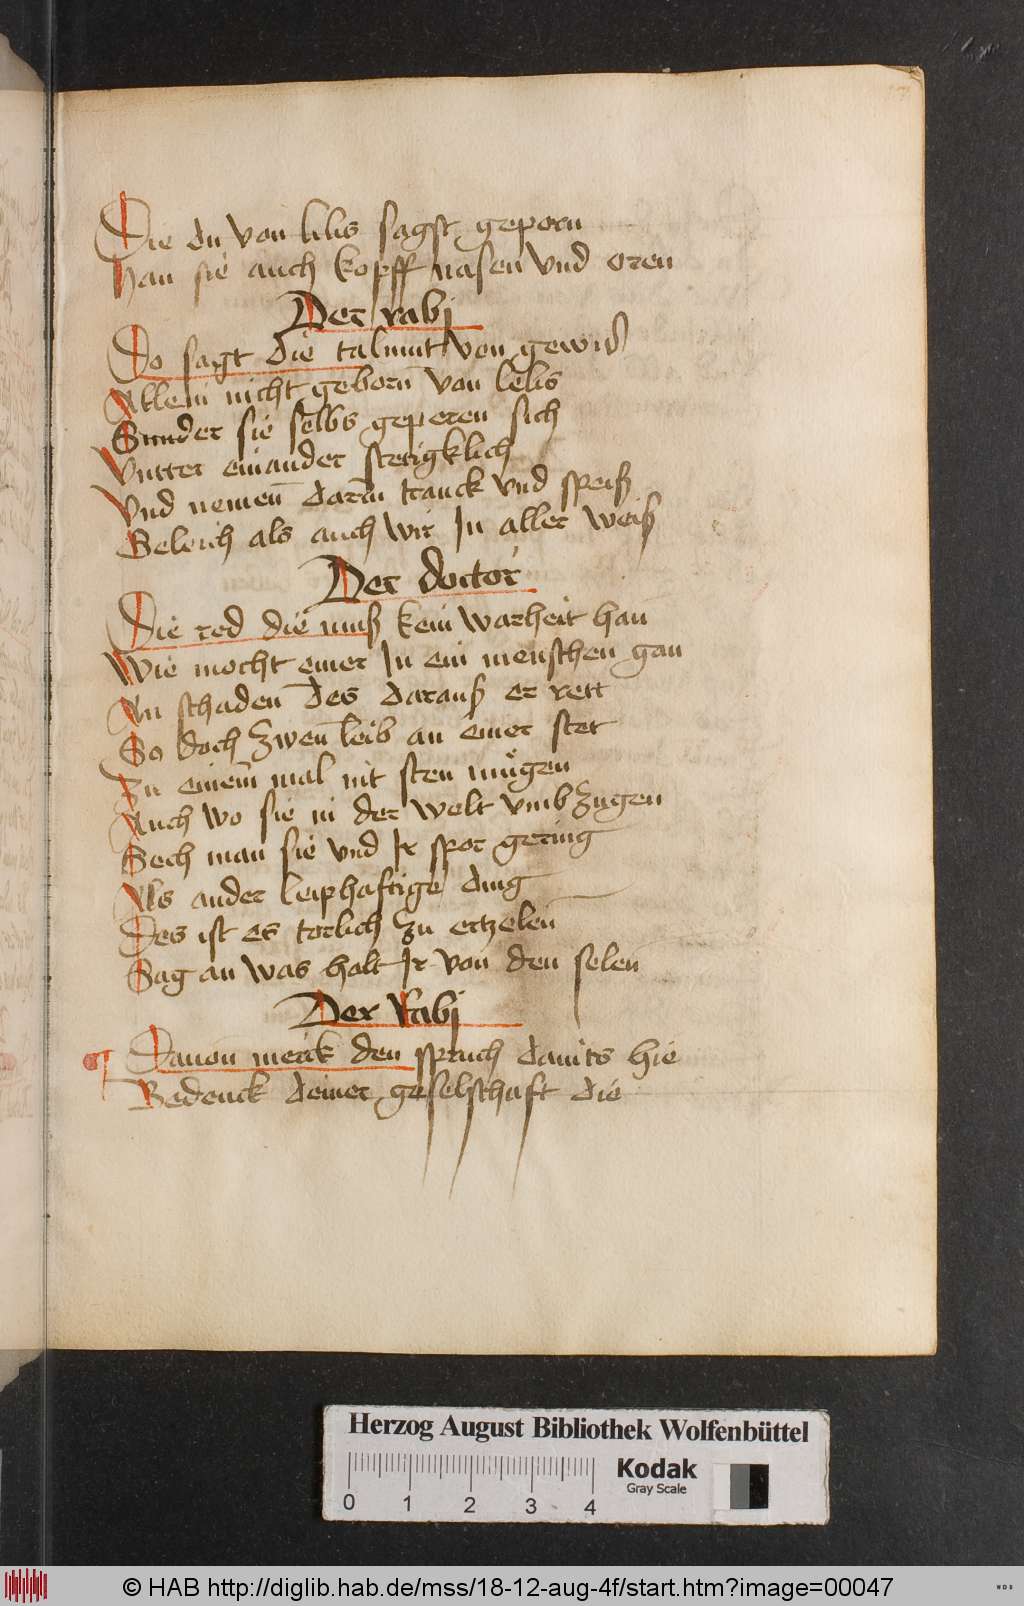 Die du von lilis sagst geporn
Han sie auch kopff nasen vnd oren
Der rabj
Do sagt die talmut von gewiß
Allein nicht geborn von lelis
Sunder sie selbs geperen sich
Vntter einander stetigklich
Vnd nemen darin tranck vnd speiß
Geleich als auch wir In aller weiß
Der doctor
Die red die muß kein warheit han
Wie mocht einer In ein menschen gan
An schaden des darauß er rett
So doch zwen leib an einer stet
Zu einem mal nit sten mugen
Auch wo sie in der welt vmb zugen
Sech man sie vnd Ir spor gering
Als ander leiphaftige ding
Des ist es torlich zu ertzelen
Sag an was halt Ir von den selen
Der Rabj
Dauon merck den spruch dauits hie
Bedenck deiner geselschaft die
Herzog August Bibliothek Wolfenbüttel
Kodak
Gray Scale
0 1 2 3 4
© HAB http://diglib.hab.de/mss/18-12-aug-4f/start.htm?image=00047